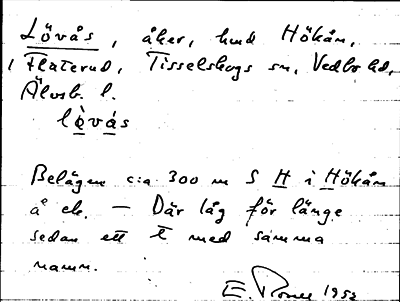 Lövås, åker, hmd Hökån,
i Flaterud, Tisselskogs sn, Vedbo hd,
Älvsb. l.
lòvás
Belägen c:a 300 m S H i Hökån
å ek. — Där låg för länge
sedan ett t med samma
namn.
E. 1952